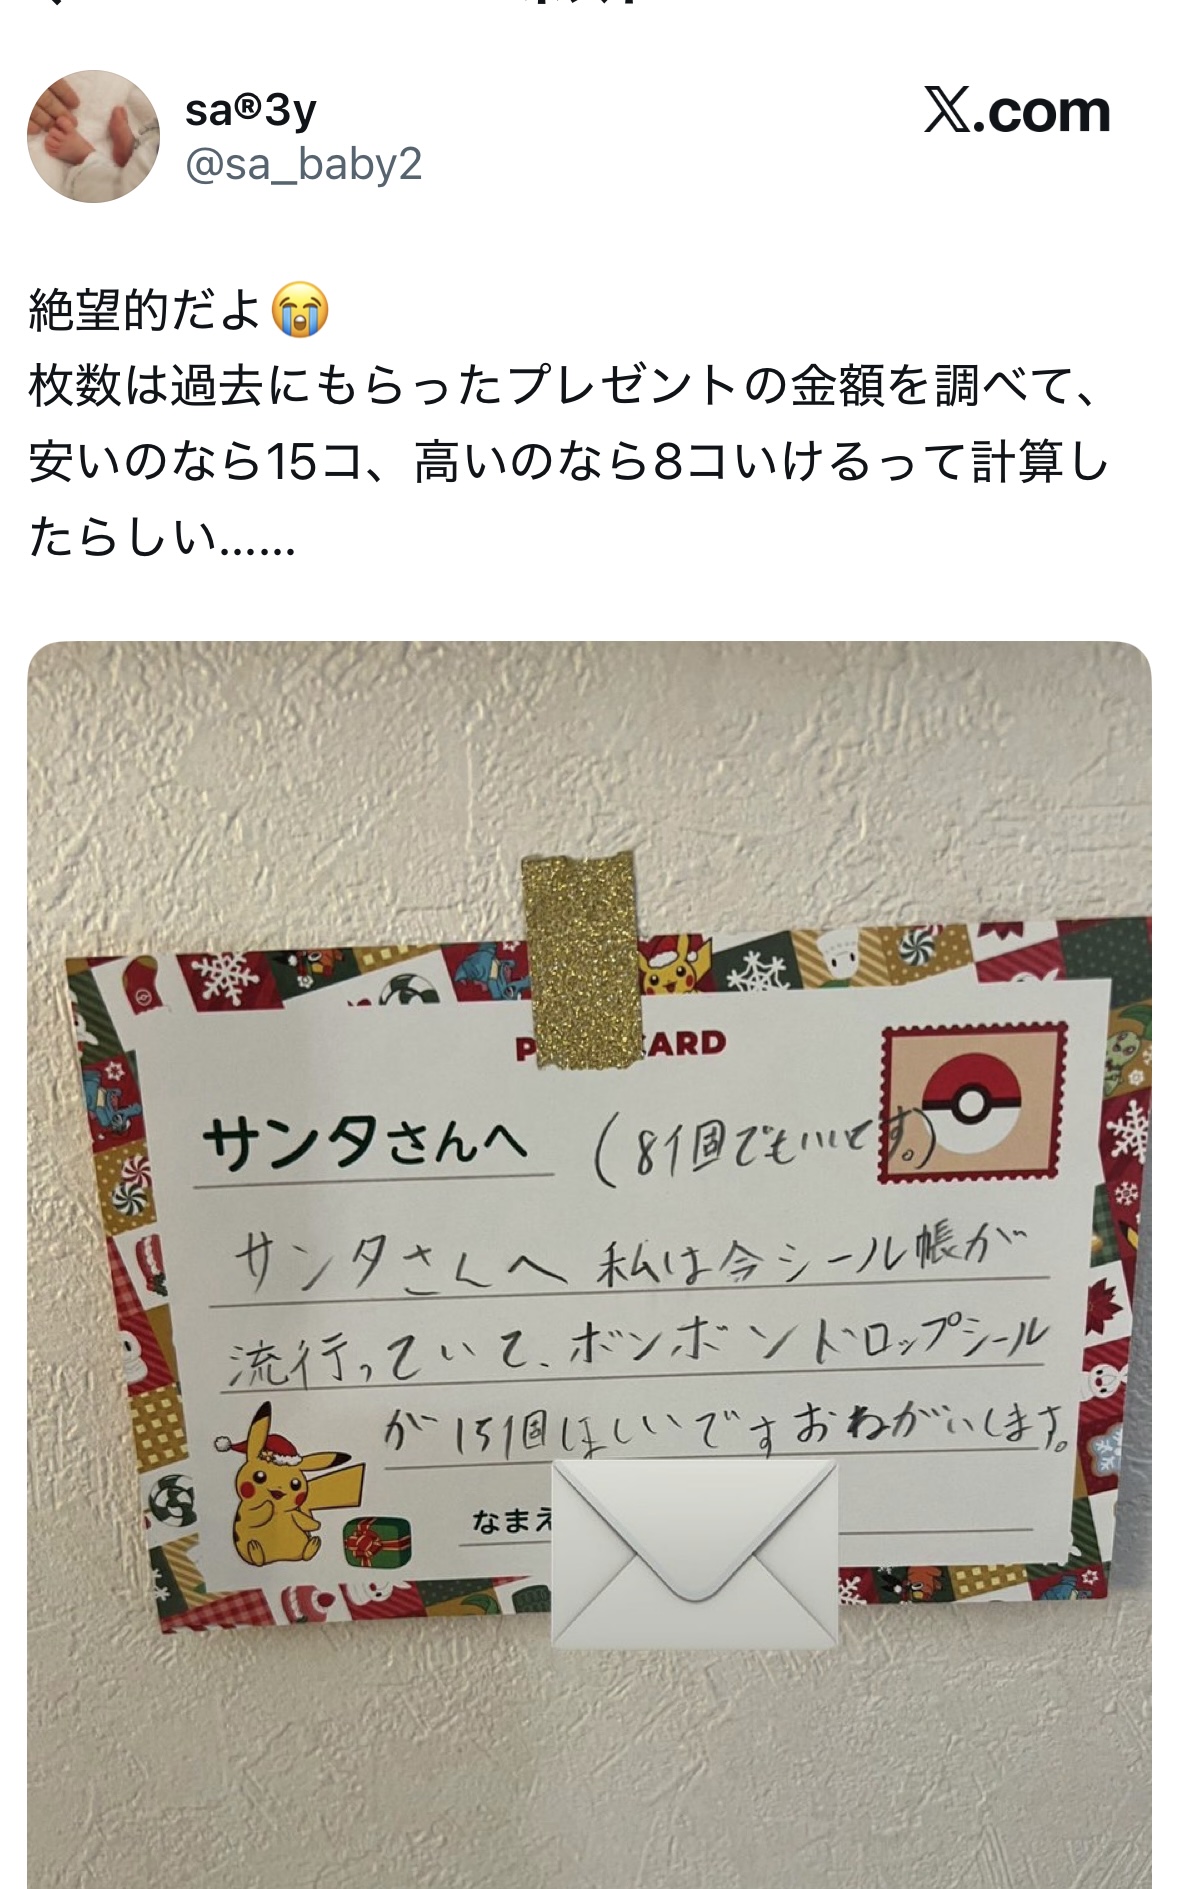 sa®3y
X.com
@sa_baby2
絶望的だよ😭
枚数は過去にもらったプレゼントの金額を調べて、
安いのなら15コ、高いのなら8コいけるって計算し
たらしい……
サンタさんへ (8個でもいいです。)
サンタさんへ 私は今シール帳が
流行っていて、ボンボンドロップシール
が15個ほしいですおねがいします。
なまえ